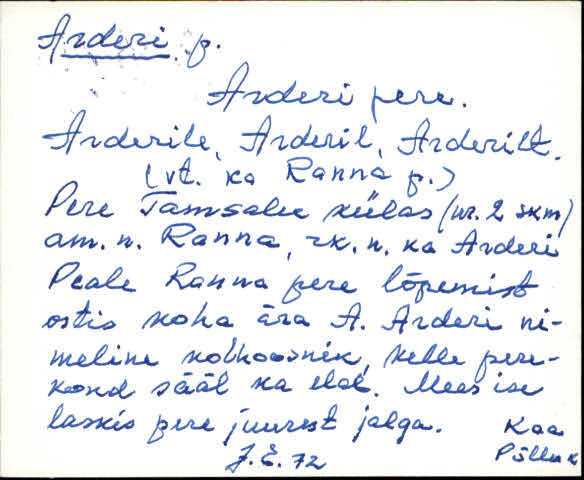 Arderi p.
Arderi pere.
Arderile, Arderil, Arderilt.
(vt. ka Ranna p.)
Pere Tamsalu külas (nr. 2 skm)
am. n. Ranna, rk. n. ka Arderi
Peale Ranna pere lõpemist
ostis koha ära A. Arderi ni-
meline kolhoosnik, kelle pere-
kond sääl ka elab. Mees ise
laskis pere juurest jalga.
Kaa
J. E. 72
Põllu k